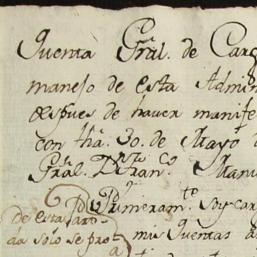 Quenta Gral. de Carg
manejo de esta Admin
despues de haver manife
con fha. 30. de Mayo d
Gral. Dn. Fran.co Manu
Primeram.te Soy car
De esta
da solo se
mis Quentas a